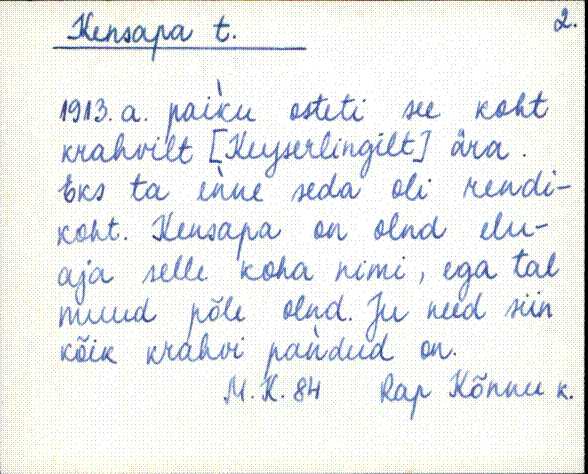 Kensapa t. 2.
1913. a. pàiku osteti see koht
krahvilt [Keyserlingilt] ära.
Eks ta ènne seda oli rendi-
koht. Kensapa on olnd elu-
aja selle koha nimi, ega tal
muud põle olnd. Ju need siin
kõik krahvi pàndud on.
M. K. 84 Rap Kõnnu k.